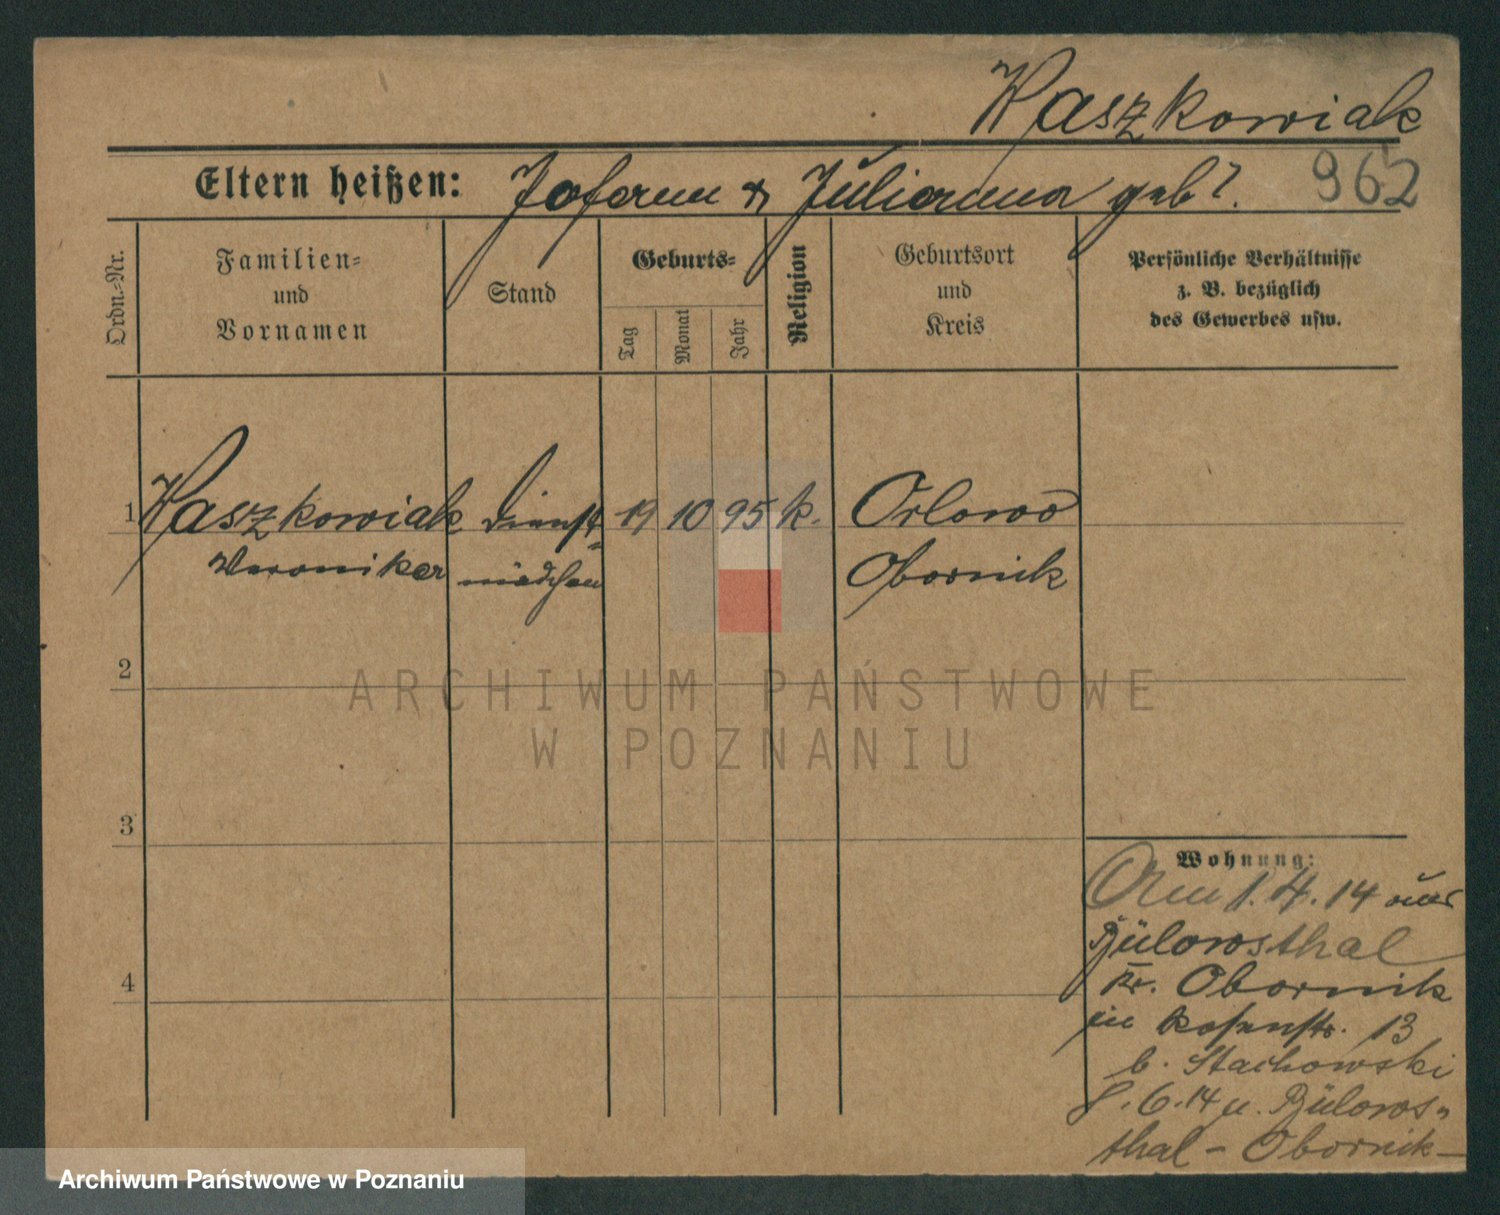 Waszkowiak
Eltern heißen: Johann & Julianna geb?. 962
Ordn.-Nr.
Familien-
und
Vornamen
Stand
Geburts-
Tag
Monat
Jahr
Religion
Geburtsort
und
Kreis
Persönliche Verhältnisse
z. B. bezüglich
des Gewerbes usw.
1 Waszkowiak Dienst- 19 10 95 k. Orlowo
Veronika mädchen Obornik
2
3
4
Wohnung:
Am 1.4.14 aus
Bülowsthal
Kr. Obornik
in Rosenstr. 13
b. Stachowski
8.6.14 n. Bülows-
thal - Obornik -
ARCHIWUM PAŃSTWOWE
W POZNANIU
Archiwum Państwowe w Poznaniu